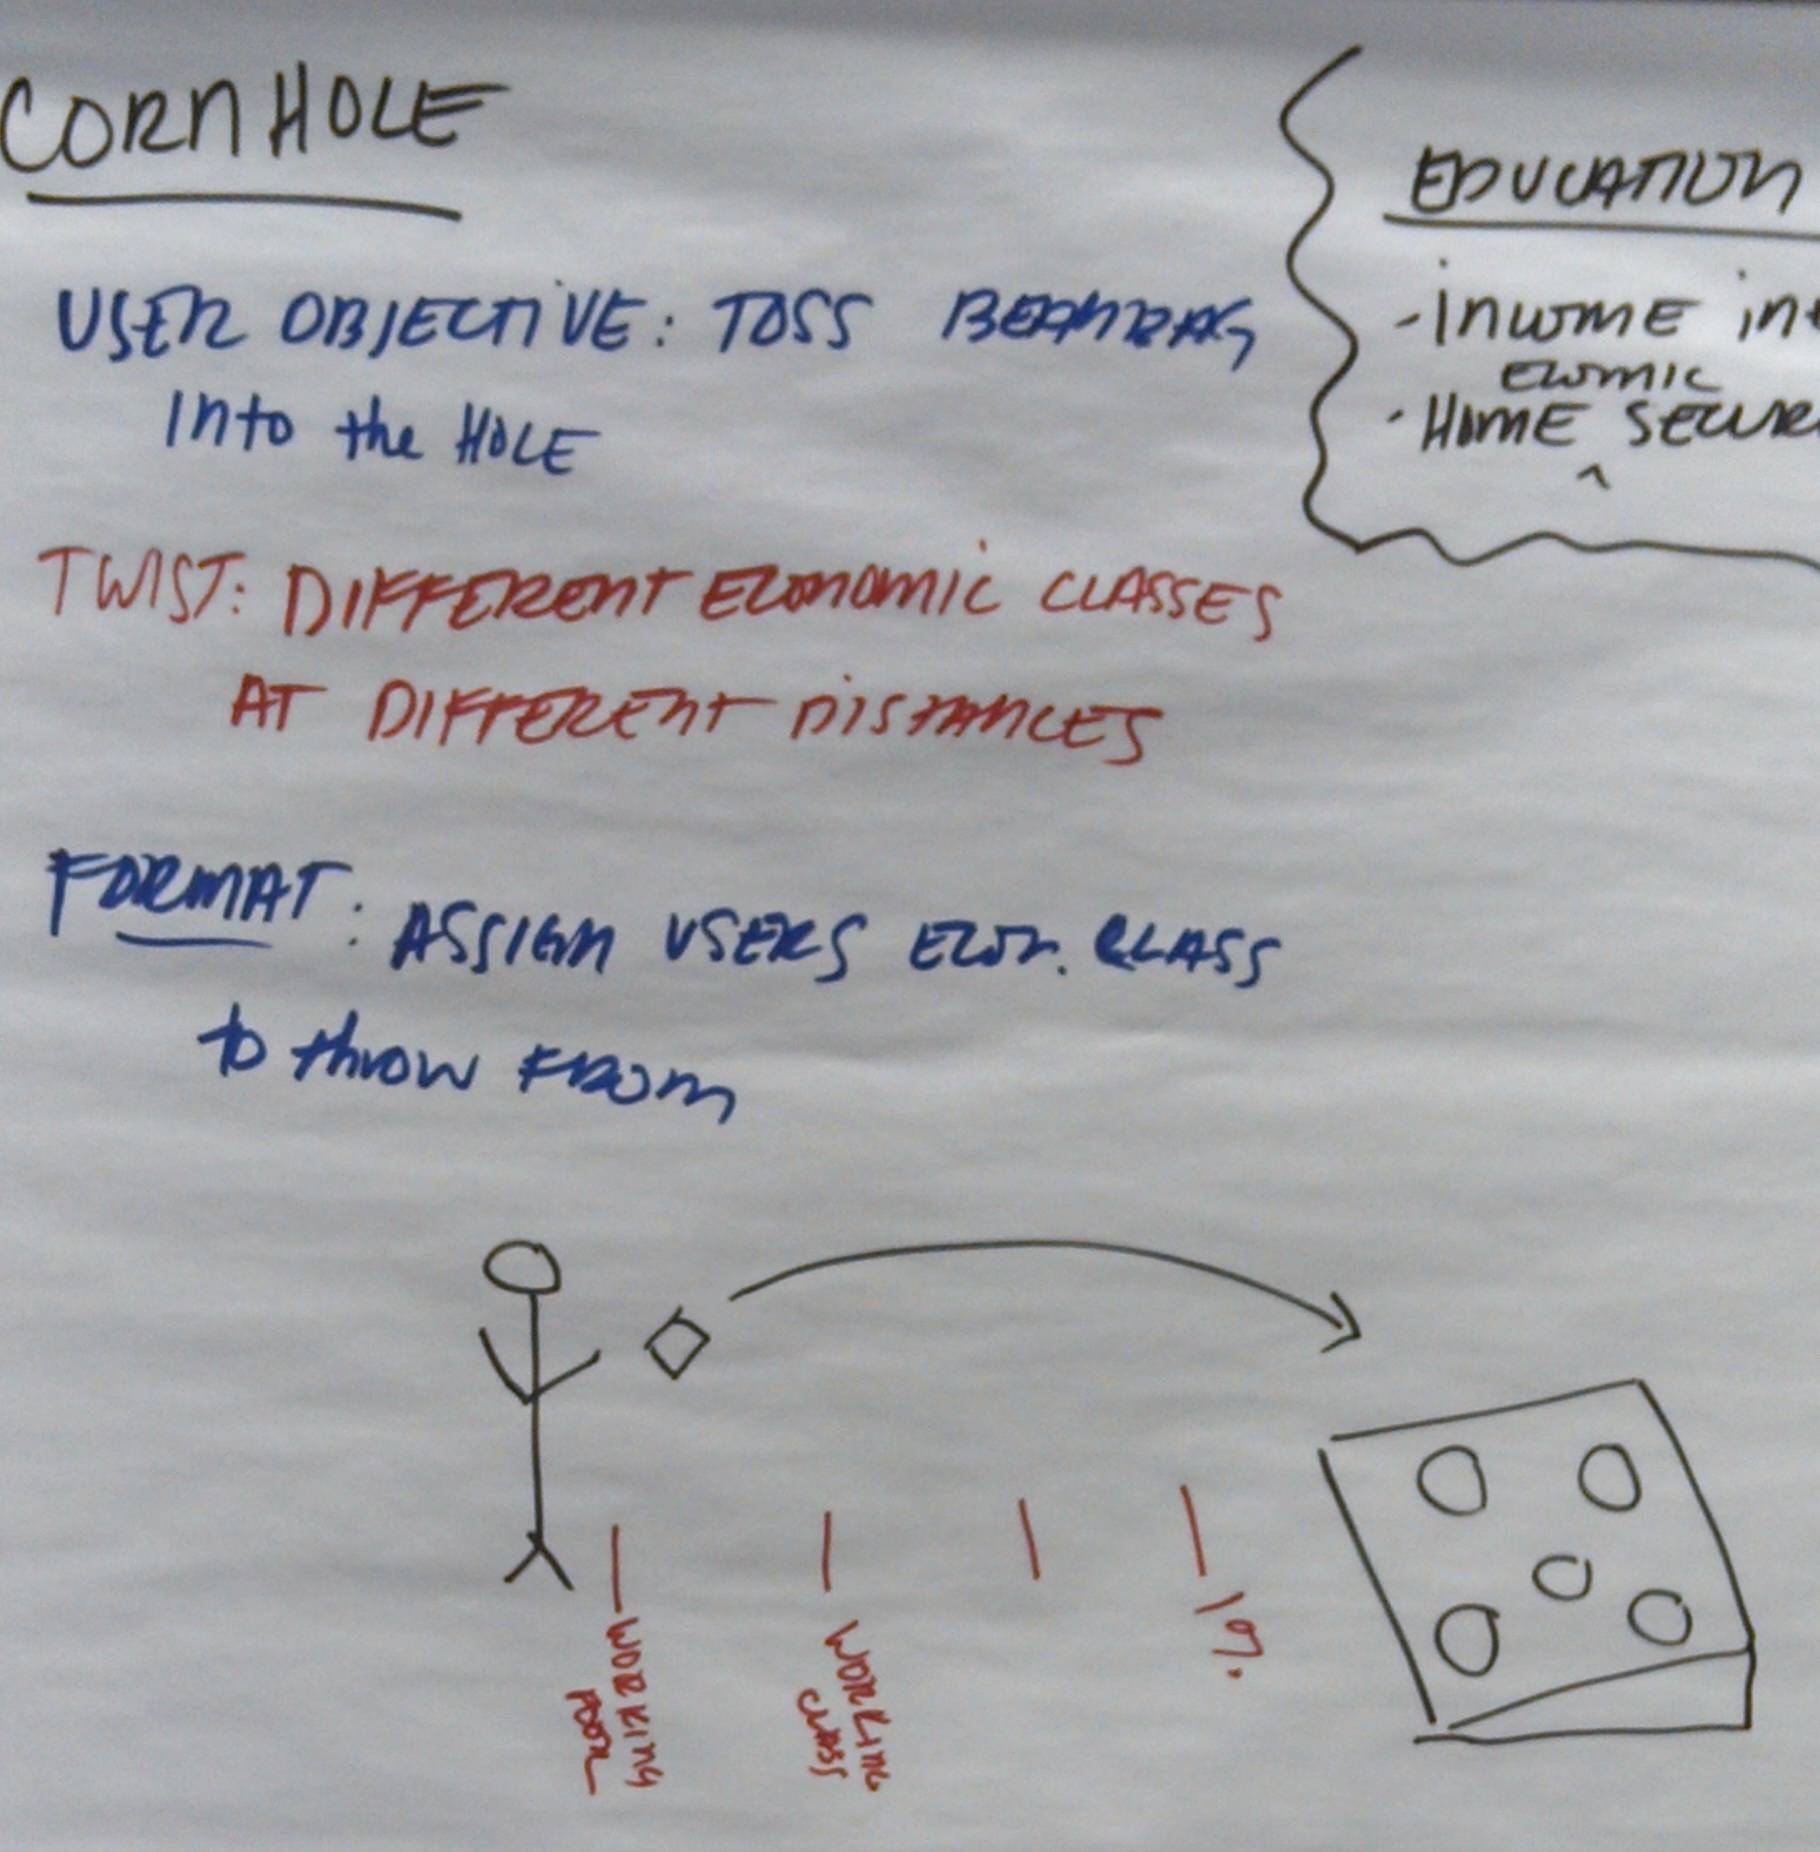 CORNHOLE
USER OBJECTIVE: TOSS BEANBAG
INTO the HOLE
TWIST: DIFFERENT ECONOMIC CLASSES
AT DIFFERENT DISTANCES
FORMAT: ASSIGN USERS ECON. CLASS
to throw FROM
WORKING
POOR
WORKING
CLASS
1%
EDUCATION
- INCOME
ECOMIC
· HOME ^